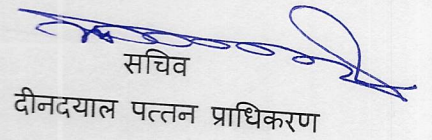 सचिव
दीनदयाल पत्तन प्राधिकरण